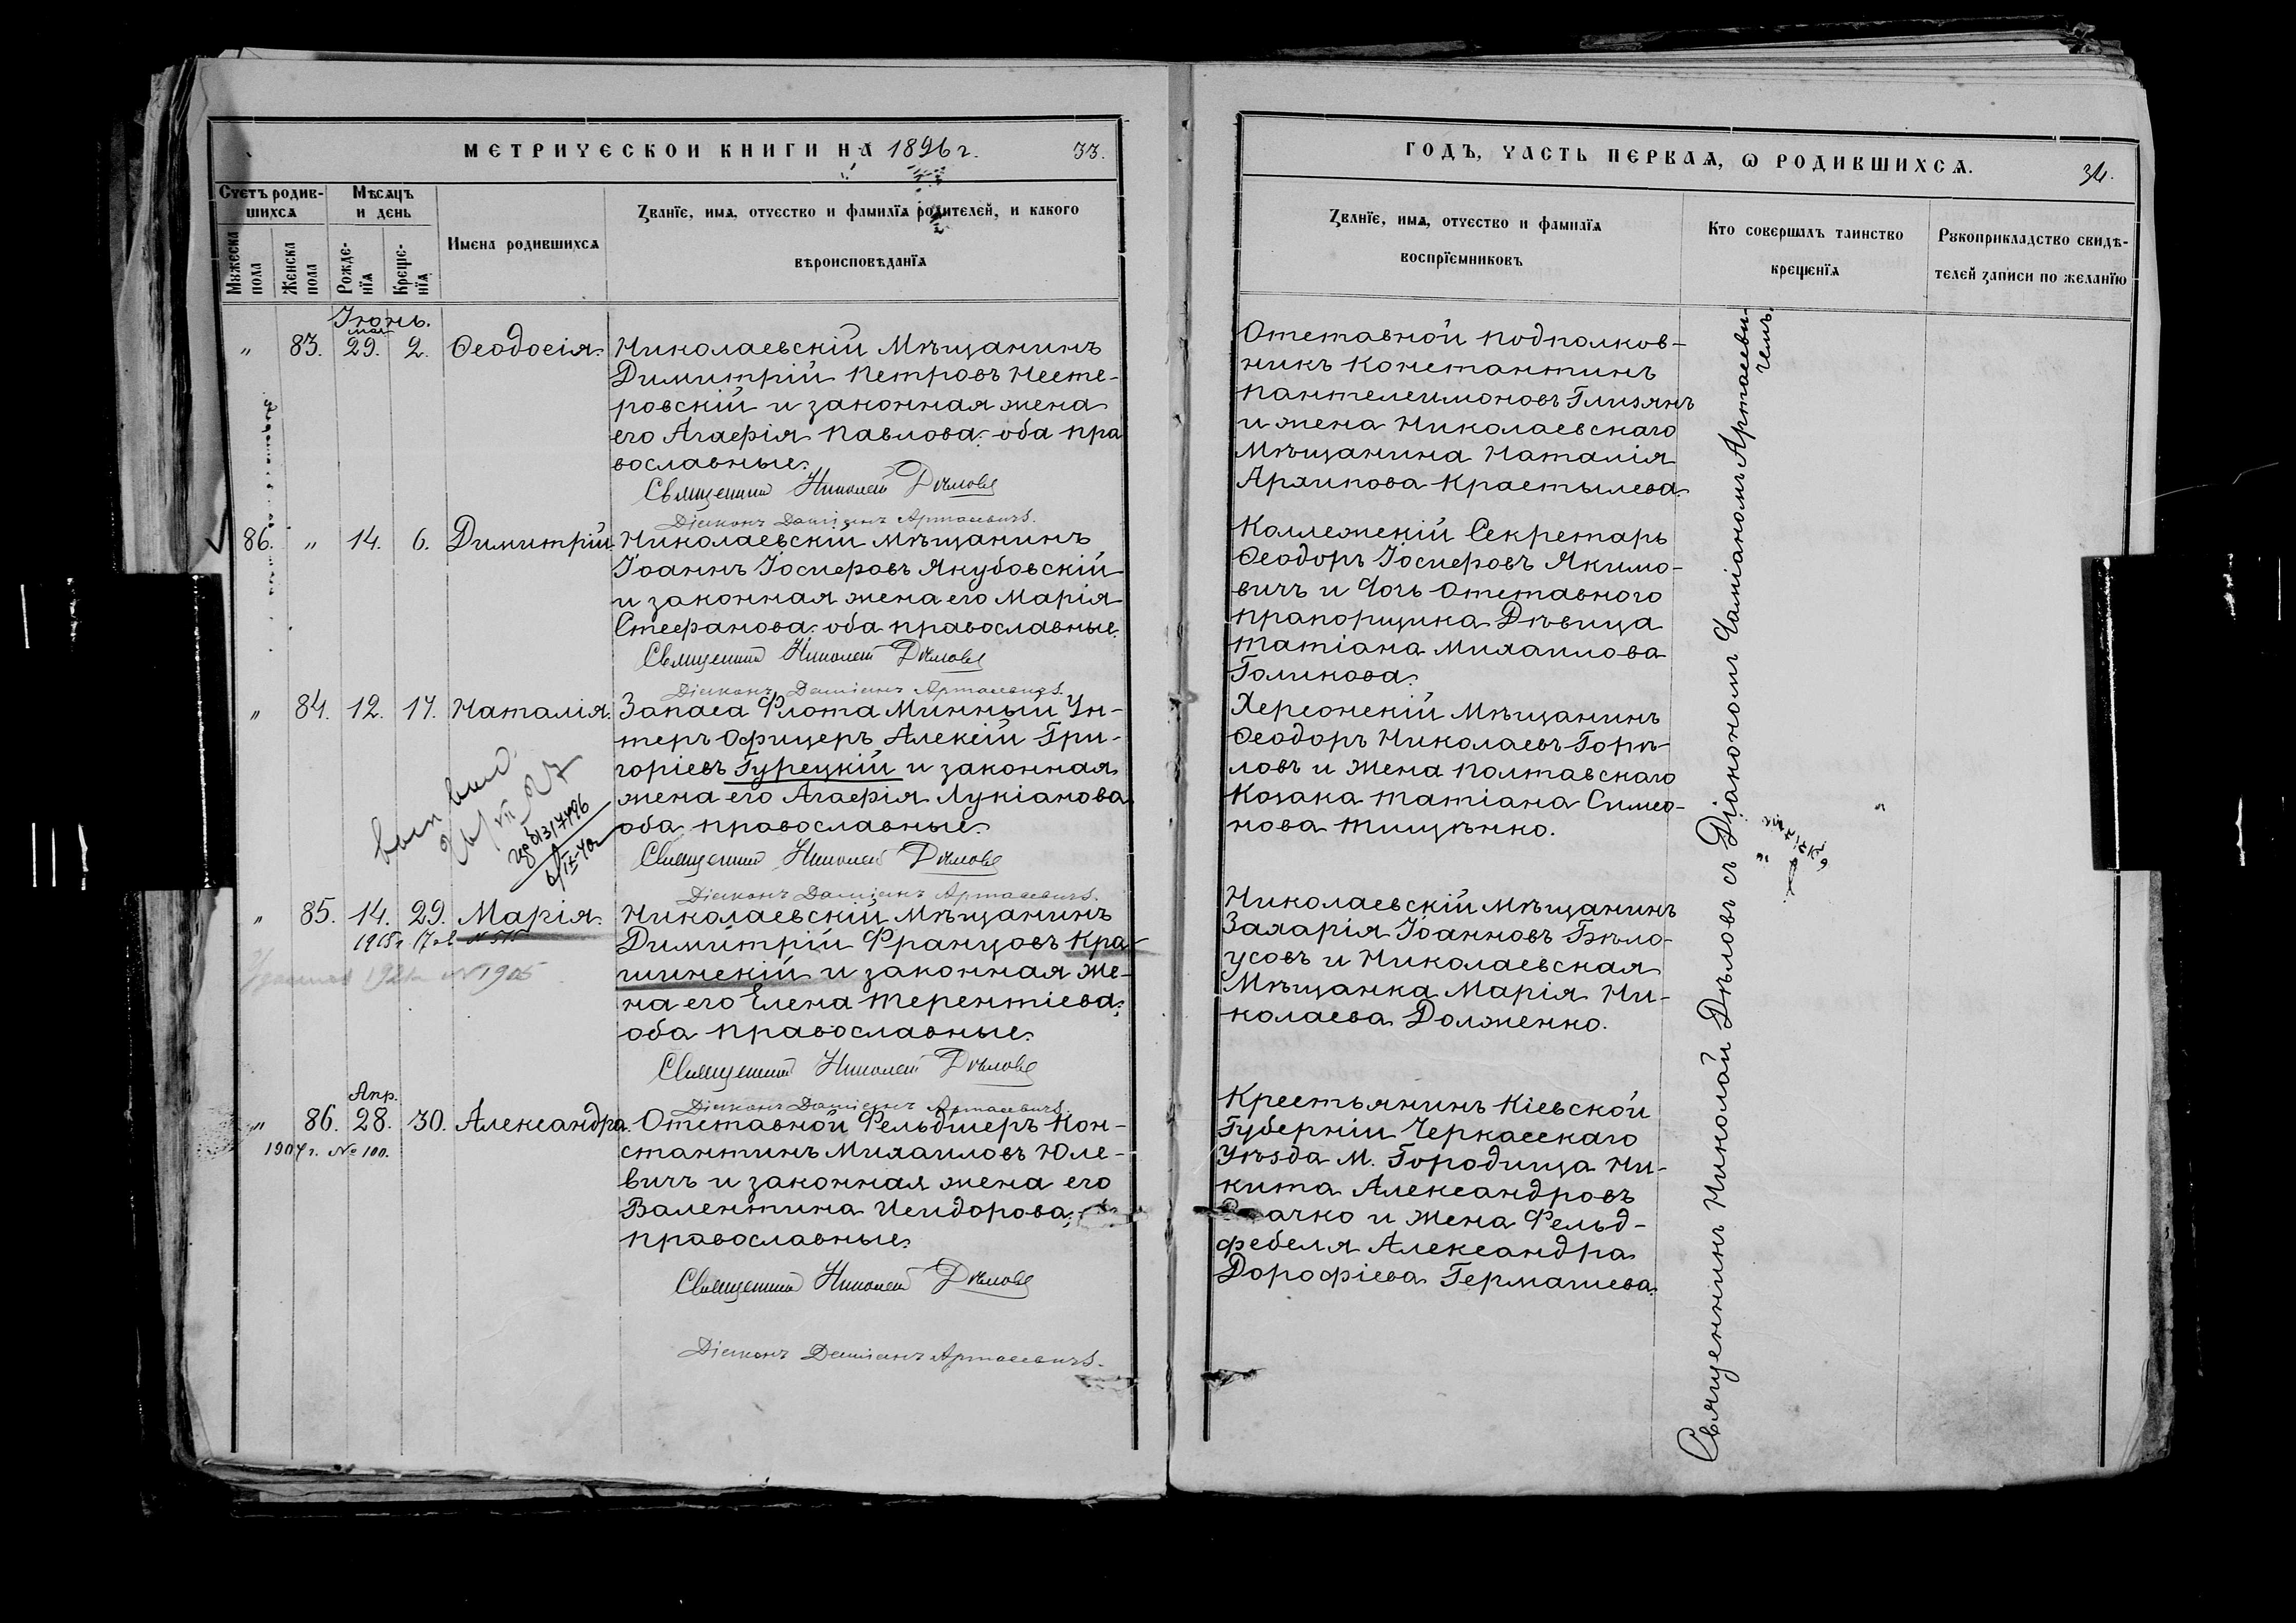 МЕТРИЧЕСКОЙ КНИГИ НА 1896 г. 33.
Счетъ родив-
шихсѧ
Мѣсѧцъ
и день
Мужеска
пола
Женска
пола
Рожде-
нїѧ
Креще-
нїѧ
Имена родившихсѧ
Званїе, имѧ, отчество и фамилїѧ родителей, и какого
вѣроисповѣданїѧ
Іюнь.
мая
„ 83. 29. 2. Ѳеодосія. Николаевскій Мѣщанинъ
Димитрій Петровъ Несте-
ровскій и законная жена
его Агафія Павлова: оба пра
вославные.
Священникъ Николай Дѣловъ
Діаконъ Даміанъ Артасевичъ.
86. „ 14. 6. Димитрій. Николаевскій мѣщанинъ
Іоаннъ Іосифовъ Якубовскій
и законная жена его Марія
Стефанова: оба православные.
Священникъ Николай Дѣловъ
Діаконъ Даміанъ Артасевичъ.
„ 84. 12. 17. Наталія. Запаса Флота Минный Ун-
теръ Офицеръ Алексій Гри-
горіевъ Гурецкій и законная
жена его Агафія Лукіанова
оба православные.
Священникъ Николай Дѣловъ
Діаконъ Даміанъ Артасевичъ.
„ 85. 14. 29. Марія. Николаевскій Мѣщанинъ
Димитрій Францовъ Кра-
шинскій и законная же-
на его Елена Терентіева:
оба православные.
Священникъ Николай Дѣловъ
Діаконъ Даміанъ Артасевичъ.
1921 № 1905
Апр.
„ 86. 28. 30. Александра. Отставной Фельдшеръ Кон-
1907 г. № 100.
стантинъ Михаиловъ Юле-
вичъ и законная жена его
Валентина Исидорова:
православные.
Священникъ Николай Дѣловъ
Діаконъ Даміанъ Артасевичъ.
ГОДЪ, ЧАСТЬ ПЕРВАѦ, Ѡ РОДИВШИХСѦ. 34.
Званїе, имѧ, отчество и фамилїѧ
воспрїемниковъ
Кто совершалъ таинство
крещенїѧ
Рукоприкладство свидѣ-
телей записи по желанїю
Отставной Подполков-
никъ Константинъ
Пантелеимоновъ Глизянъ
и жена Николаевскаго
Мѣщанина Наталія
Архипова Крастылева.
Коллежскій Секретарь
Ѳеодоръ Іосифовъ Якимо-
вичъ и дочь Отставного
Прапорщика Дѣвица
Татіана Михаилова
Голикова.
Херсонскій Мѣщанинъ
Ѳеодоръ Николаевъ Горѣ-
ловъ и жена Полтавскаго
Козака Татіана Симео-
нова Тищѣнко.
Николаевскій мѣщанинъ
Захарія Іоанновъ Бѣло-
усовъ и Николаевская
Мѣщанка Марія Ни-
колаева Долженко.
Крестьянинъ Кіевской
Губерніи Черкасскаго
Уѣзда М. Городища Ни-
кита Александровъ
и жена Фельд-
фебеля Александра
Дорофіева Гермашева.
Священникъ Николай Дѣловъ съ Діакономъ Даміаномъ Артасеви-
чемъ.